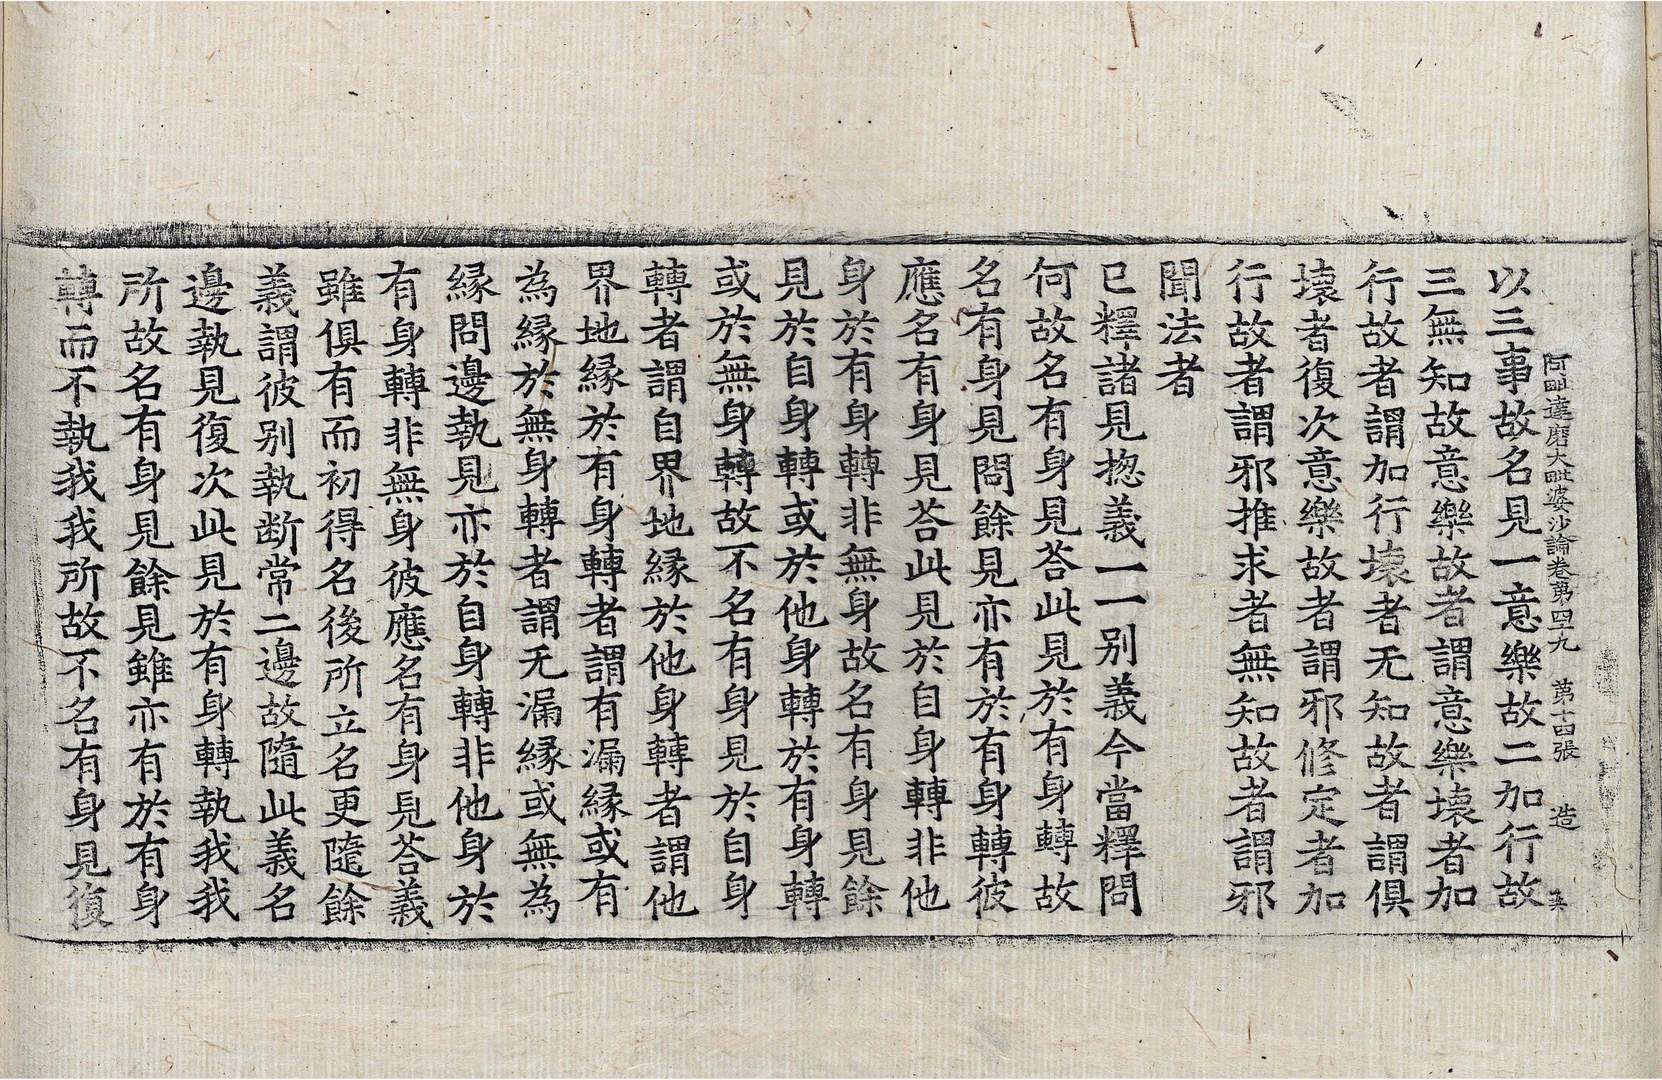 阿毗達磨大毗婆沙論卷第四九 第十四張 造
以三事故名見一意樂故二加行故
三無知故意樂故者謂意樂壞者加
行故者謂加行壞者无知故者謂俱
壞者復次意樂故者謂邪修定者加
行故者謂邪推求者無知故者謂邪
聞法者
已釋諸見揔義一一別義今當釋問
何故名有身見荅此見於有身轉故
名有身見問餘見亦有於有身轉彼
應名有身見荅此見於自身轉非他
身於有身轉非無身故名有身見餘
見於自身轉或於他身轉於有身轉
或於無身轉故不名有身見於自身
轉者謂自界地緣於他身轉者謂他
界地緣於有身轉者謂有漏緣或有
為緣於無身轉者謂无漏緣或無為
緣問邊執見亦於自身轉非他身於
有身轉非無身彼應名有身見荅義
雖俱有而初得名後所立名更隨餘
義謂彼別執断常二邊故隨此義名
邊執見復次此見於有身轉執我我
所故名有身見餘見雖亦有於有身
轉而不執我我所故不名有身見復